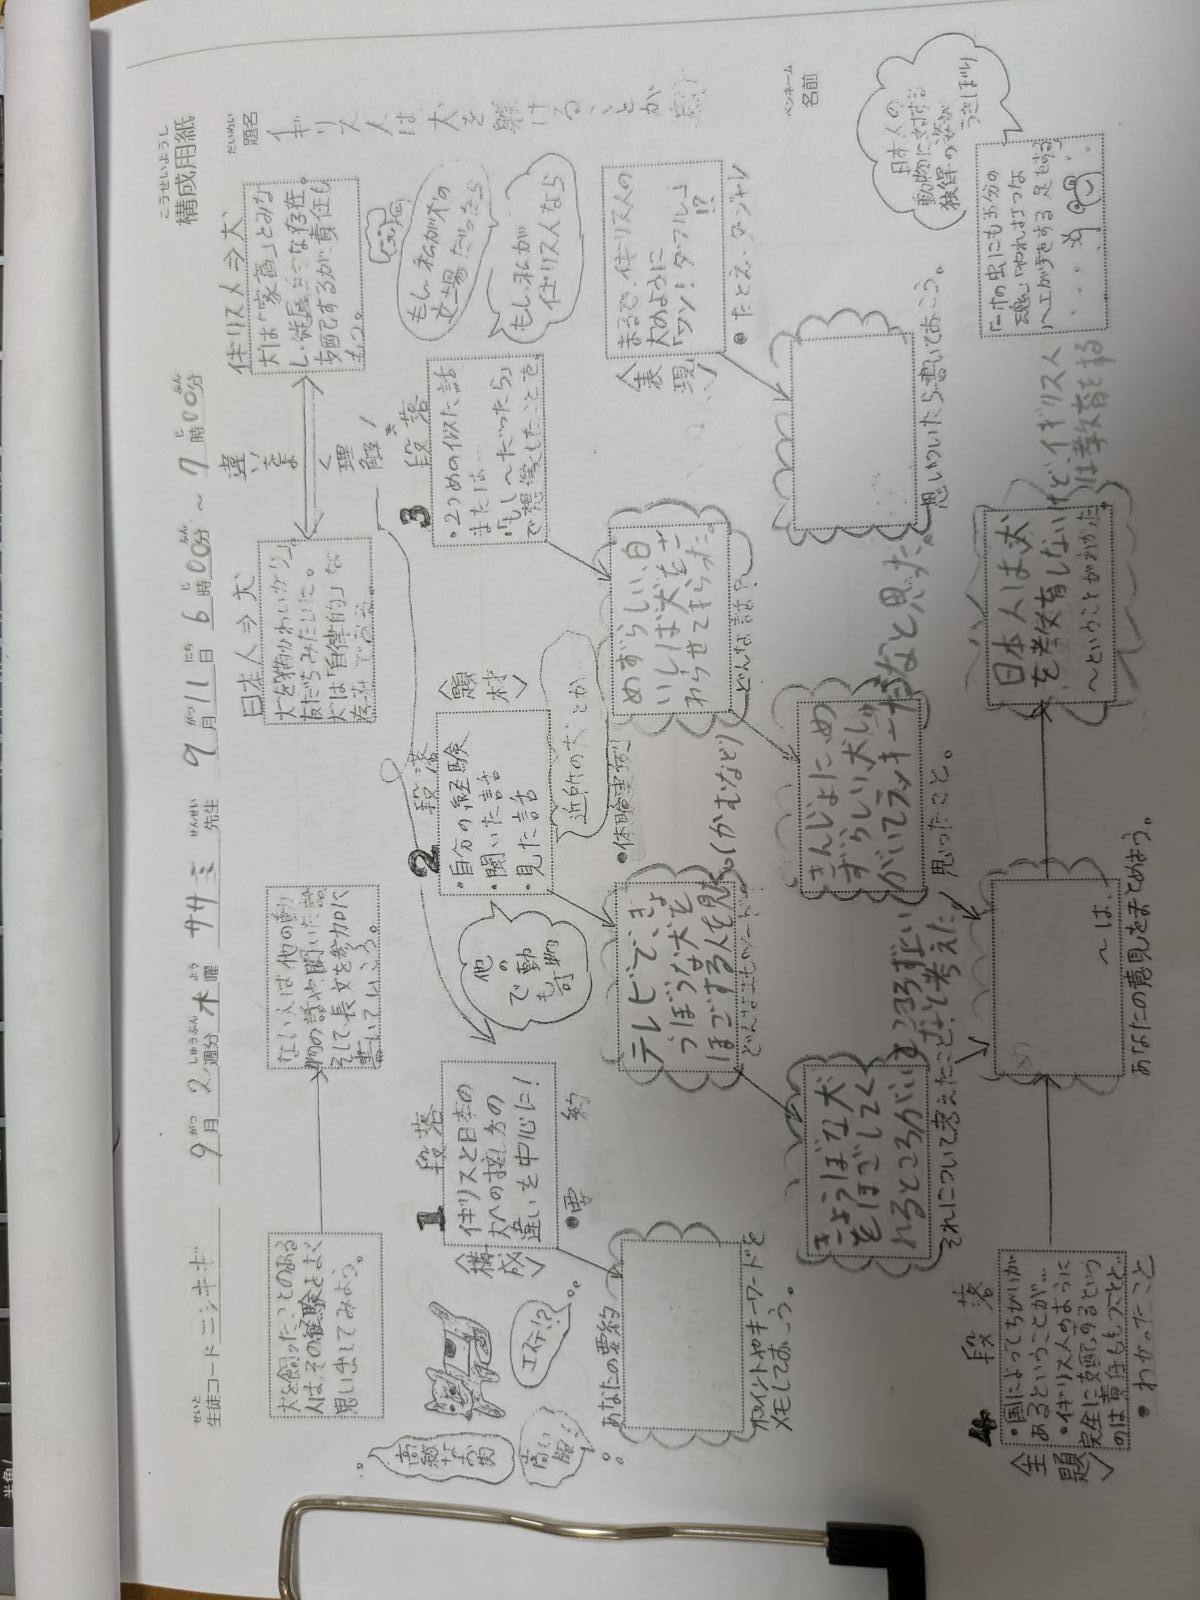 こうせいようし
構成用紙
だいめい
題名
イギリス人は犬を躾けることが
ペンネーム
名前
せいと
生徒コード ニシキギ
9月2週分 木曜 ササミ先生
9月11日 6時00分〜7時00分
犬を飼ったことのある
人は、その経験をよく
思い出してみよう。
ない人は他の動
物の話や聞いた話
そして長文を参加に
書いていこう。
日本人⇒犬
犬を猫かわいがり。
友だちみたいに。
犬は「自律的」な
存在である。
違いをよく理解!
イギリス人⇒犬
犬は「家畜」とみな
し、従属的な存在。
支配するが責任も
もつ。
高級なお肉
高い服!
エイ!?
〈構成〉
1 段落
イギリスと日本の
犬への接し方の
違いを中心に!
●要約
他の動物でも可
2 段落
・自分の経験
・聞いた話
・見た話
〈題材〉
近所の犬とか
●体験実例
3 段落
・2つめの似た話
または…
・「もし〜だったら」
で想像したことを。
もし、私が犬の
立場だったら
もし私が
イギリス人なら
〈表現〉
まるで、イギリス人の
犬のように
「ワン!ダフル」
!?
●たとえ・ダジャレ
あなたの要約
ポイントやキーワードを
メモしておこう。
テレビできょ
うぼうな犬を
ほごする人を見た(かむなど)
めずらしい、白
いしば犬をさ
わらせてもらった。
どんな話?
きょうぼな犬
をほごしてく
れるところがいるところが正しい
それについて考えたこと、など考えた
きんじょにめ
ずらしい犬しゅ
がいてラッキーだなと思った。
思ったこと。
思いついたら書いておこう。
日本人の
動物に対する
独得の姿が
うきぼり
「一寸の虫にも五分の
魂」「やれ打つな
ハエが手をする足をする」
〈主題〉
4 段落
・国によってちがいが
あるということが…
・イギリス人のように
完全に支配するという
のは責任ももつことで…
●わかったこと
〜は、
あなたの意見をまとめよう。
日本人は犬
を教育しないけど、イギリス人は教育をする
〜ということがわかった